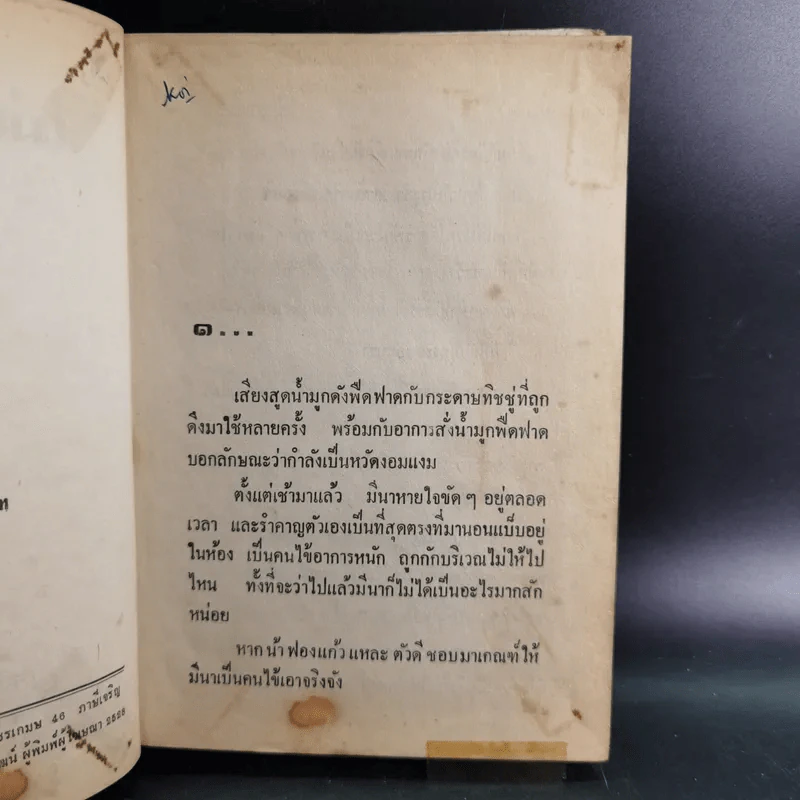 koi
๑...
เสียงสูดน้ำมูกดังฟืดฟาดกับกระดาษทิชชู่ที่ถูก
ดึงมาใช้หลายครั้ง พร้อมกับอาการสั่งน้ำมูกฟืดฟาด
บอกลักษณะว่ากำลังเป็นหวัดงอมแงม
ตั้งแต่เช้ามาแล้ว มีนาหายใจขัด ๆ อยู่ตลอด
เวลา และรำคาญตัวเองเป็นที่สุดตรงที่มานอนแบ็บอยู่
ในห้อง เป็นคนไข้อาการหนัก ถูกกักบริเวณไม่ให้ไป
ไหน ทั้งที่จะว่าไปแล้วมีนาก็ไม่ได้เป็นอะไรมากสัก
หน่อย
หาก น้า ฟองแก้ว แหละ ตัวดี ชอบมาเกณฑ์ให้
มีนาเป็นคนไข้เอาจริงจัง
46 ภาษีเจริญ
ผู้พิมพ์ผู้โฆษณา 2528